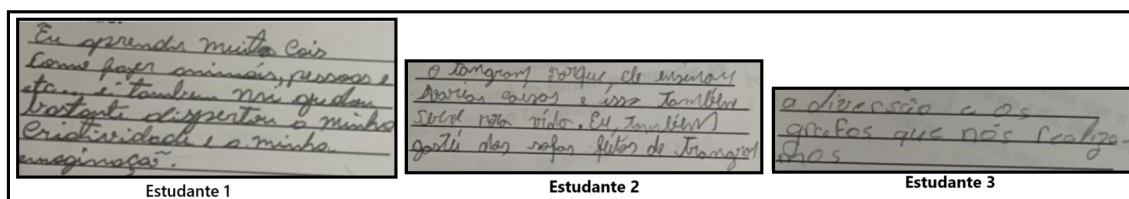 Eu aprendi muita cois
como fazer animais, pessoas e
etc... e também mi ajudou
bastante dispertou a minha
Criatividade e a minha
imaginação.
Estudante 1
O tangram porque, ele ensinou
varias coisas e isso também
serve para vida. Eu também
gostei das feitos de trangram
Estudante 2
a diversão e os
grafos que nós realiza-
mos
Estudante 3